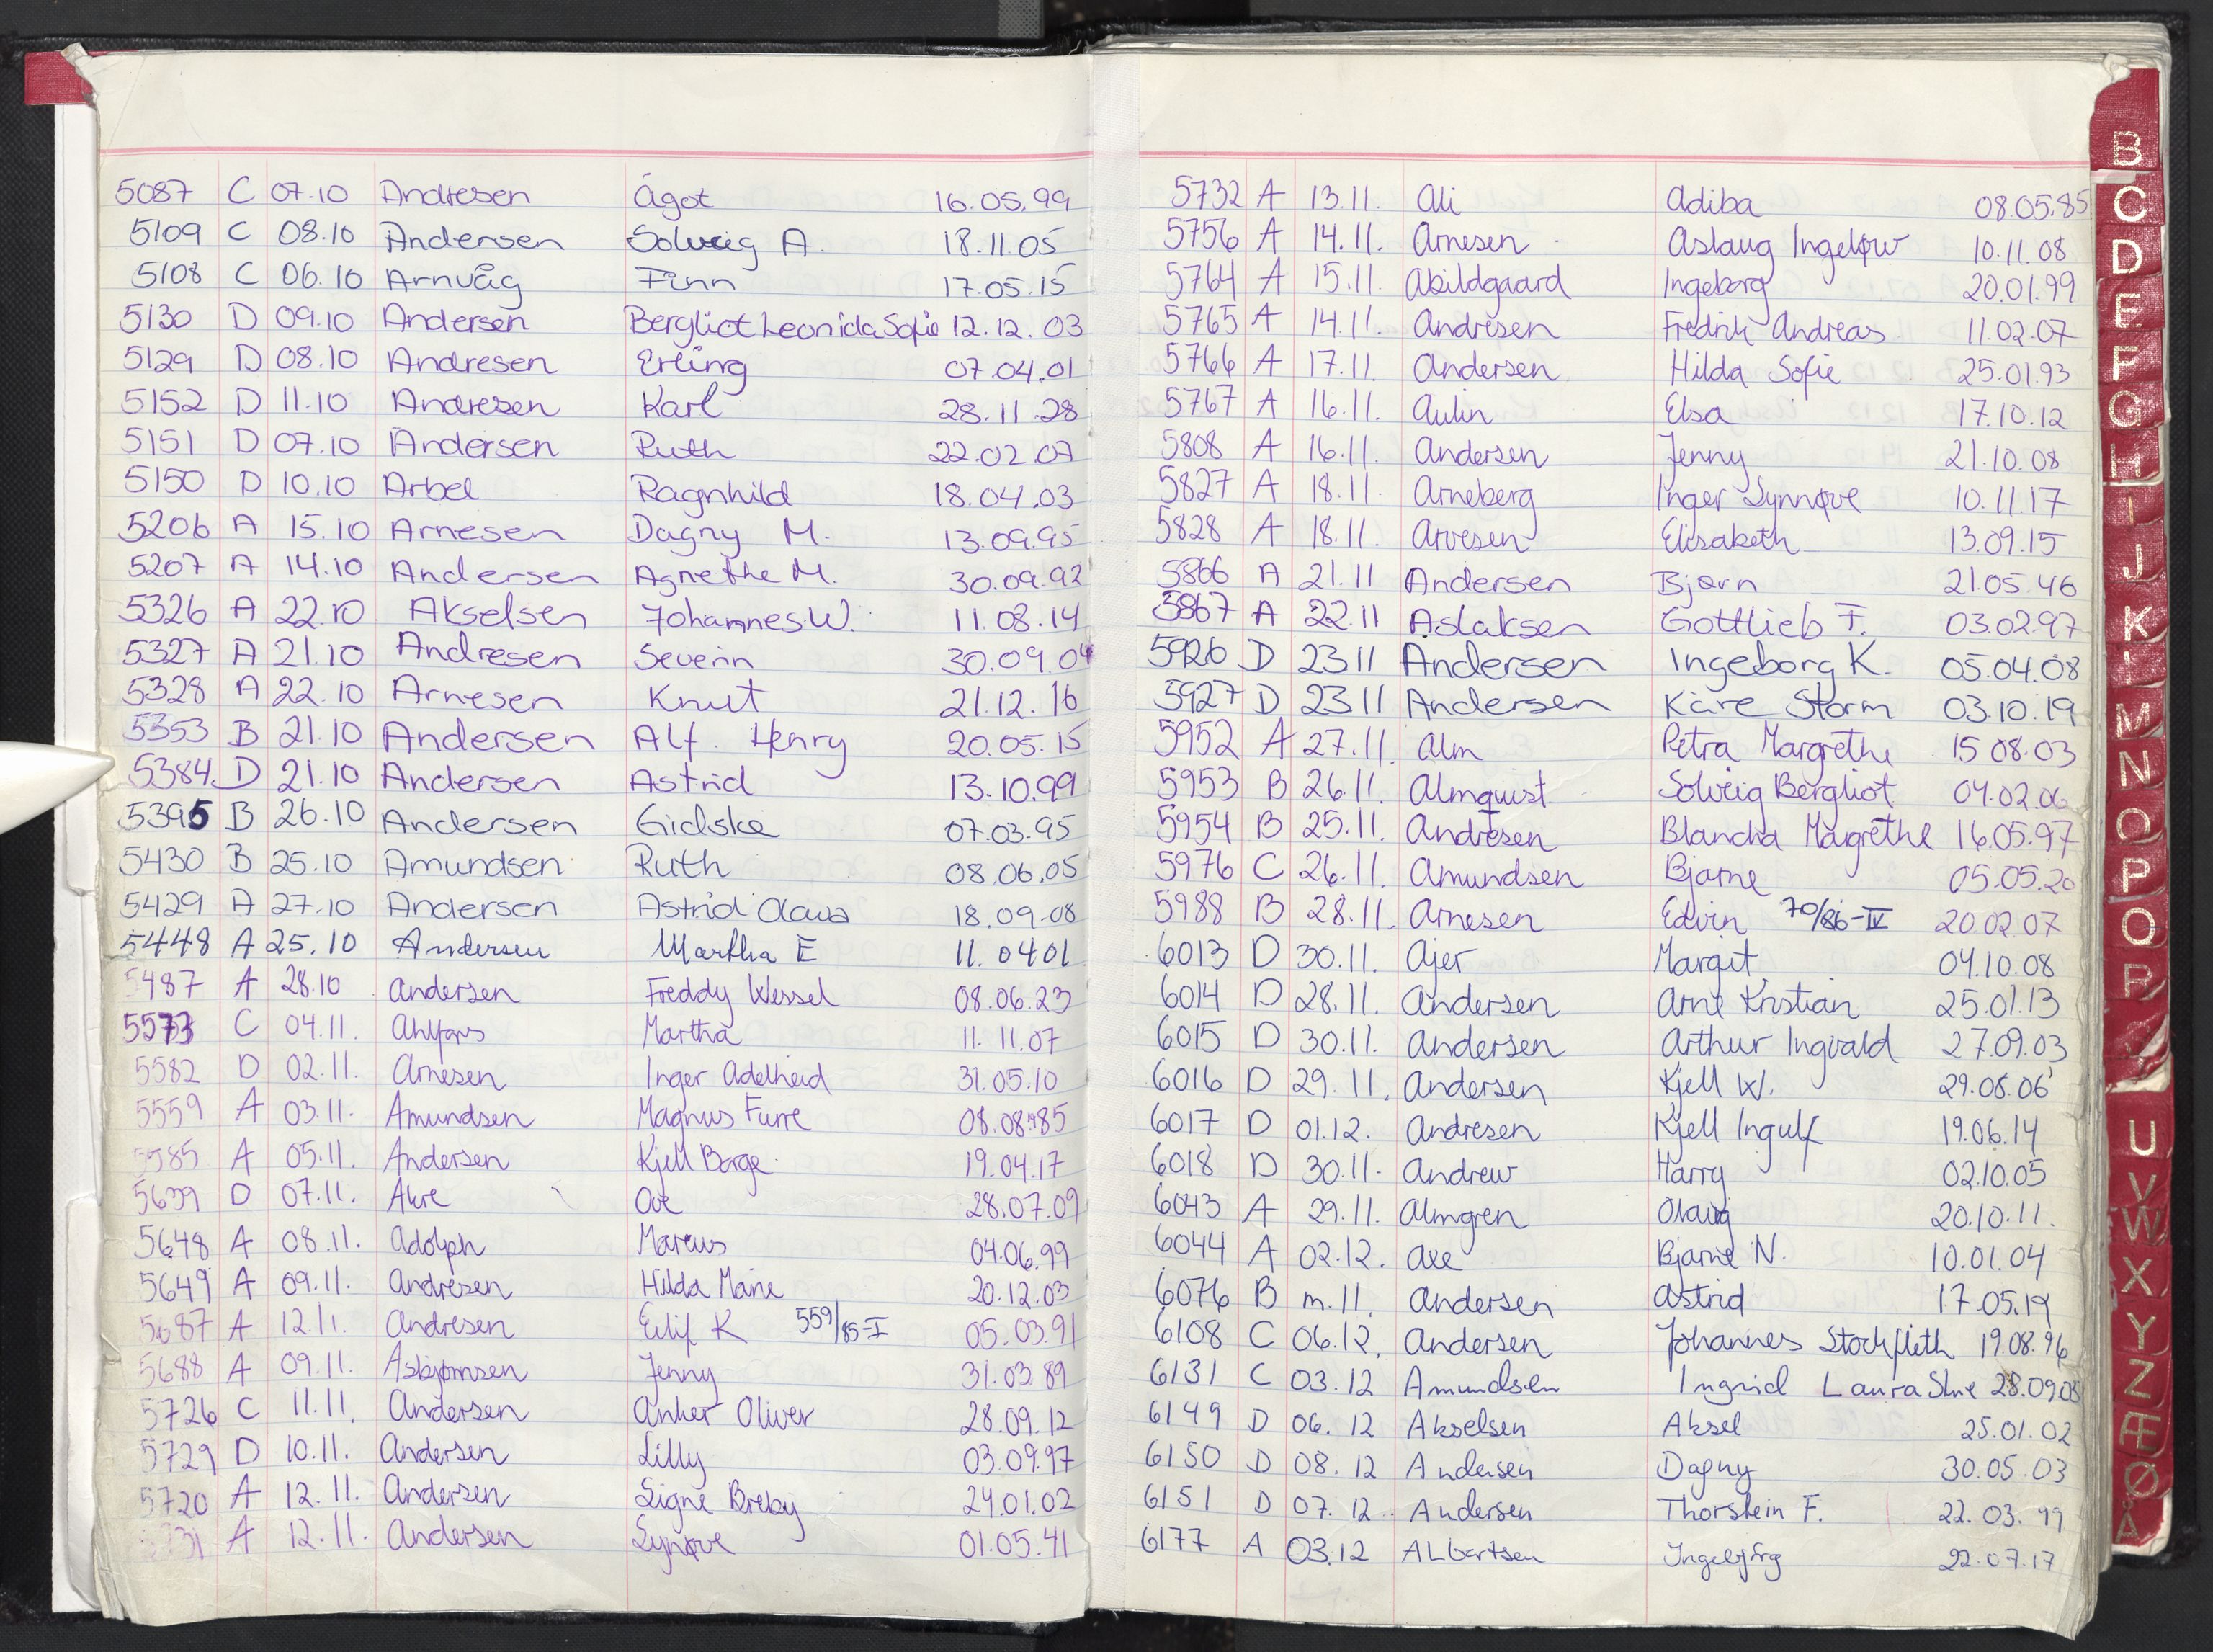 5087 C 07.10 Andresen Ågot 16.05.99
5109 C 08.10 Andersen Solveig A. 18.11.05
5108 C 06.10 Arnvåg Finn 17.05.15
5130 D 09.10 Andersen Bergliot Leonida Sofie 12.12.03
5129 D 08.10 Andresen Erling 07.04.01
5152 D 11.10 Andresen Karl 28.11.28
5151 D 07.10 Andersen Ruth 22.02.07
5150 D 10.10 Arbel Ragnhild 18.04.03
5206 A 15.10 Arnesen Dagny M. 13.09.95
5207 A 14.10 Andersen Agnethe M. 30.09.92
5326 A 22.10 Akselsen Johannes W. 11.08.14
5327 A 21.10 Andresen Severin 30.09.04
5328 A 22.10 Arnesen Knut 21.12.16
5353 B 21.10 Andersen Alf Henry 20.05.15
5384 D 21.10 Andersen Astrid 13.10.99
5395 B 26.10 Andersen Gidske 07.03.95
5430 B 25.10 Amundsen Ruth 08.06.05
5429 A 27.10 Andersen Astrid Olava 18.09.08
5448 A 25.10 Andersen Martha E 11.0401
5487 A 28.10 Andersen Freddy Wessel 08.06.23
5573 C 04.11. Martha 11.11.07
5582 D 02.11. Arnesen Inger Adelheid 31.05.10
5559 A 03.11. Amundsen Magnus Furre 08.08.85
5585 A 05.11. Andersen Kjell Borge 19.04.17
5639 D 07.11. Akre Ove 28.07.09
5648 A 08.11. Adolph Marcus 04.06.99
5649 A 09.11. Andresen Hilda Marie 20.12.03
5687 A 12.11. Andresen Eilif K 559/85-I 05.03.91
5688 A 09.11. Asbjørnsen Jenny 31.03.89
5726 C 11.11. Andersen Anker Oliver 28.09.12
5729 D 10.11. Andersen Lilly 03.09.97
5720 A 12.11. Andersen Signe Breby 24.01.02
A 12.11. Andersen Synøve 01.05.41
5732 A 13.11. Ali Adiba 08.05.85
5756 A 14.11. Arnesen Aslaug Ingeløw 10.11.08
5764 A 15.11. Abildgaard Ingeborg 20.01.99
5765 A 14.11. Andresen Fredrik Andreas 11.02.07
5766 A 17.11. Andersen Hilda Sofie 25.01.93
5767 A 16.11. Aulin Elsa 17.10.12
5808 A 16.11. Andersen Jenny 21.10.08
5827 A 18.11. Arneberg Inger Synnøve 10.11.17
5828 A 18.11. Arvesen Elisabeth 13.09.15
5866 A 21.11 Andersen Bjørn 21.05.46
5867 A 22.11 Aslaksen Gottlieb F. 03.02.97
5926 D 23 11 Andersen Ingeborg K. 05.04.08
5927 D 23 11 Andersen Kåre Storm 03.10.19
5952 A 27.11. Alm Petra Margrethe 15 08.03
5953 B 26.11. Almquist Solveig Bergliot 04.02.06
5954 B 25.11. Andresen Blancha Margrethe 16.05.97
5976 C 26.11. Amundsen Bjarne 05.05.20
5988 B 28.11. Arnesen Edvin 70/86-IV 20.02.07
6013 D 30.11. Ajer Margit 04.10.08
6014 D 28.11. Andersen Arne Kristian 25.01.13
6015 D 30.11. Andersen Arthur Ingvald 27.09.03
6016 D 29.11. Andersen Kjell W. 29.08.06
6017 D 01.12. Andresen Kjell Ingulf 19.06.14
6018 D 30.11. Andrew Harry 02.10.05
6043 A 29.11. Almgren Olaug 20.10.11.
6044 A 02.12. Axe Bjarne N. 10.01.04
6076 B m.11. Andersen Astrid 17.05.19
6108 C 06.12. Andersen Johannes Stockfleth 19.08.96
6131 C 03.12 Amundsen Ingrid Laura 28.09.08
6149 D 06.12 Akselsen Aksel 25.01.02
6150 D 08.12 Andersen Dagny 30.05.03
6151 D 07.12. Andersen Thorstein F. 22.03.99
6177 A 03.12 ALbertsen Ingebjørg 22.07.17
B
C
D
E
F
G
H
I
J
K
L
M
N
O
P
Q
R
U
V
W
X
Y
Z
Æ
Ø
Å